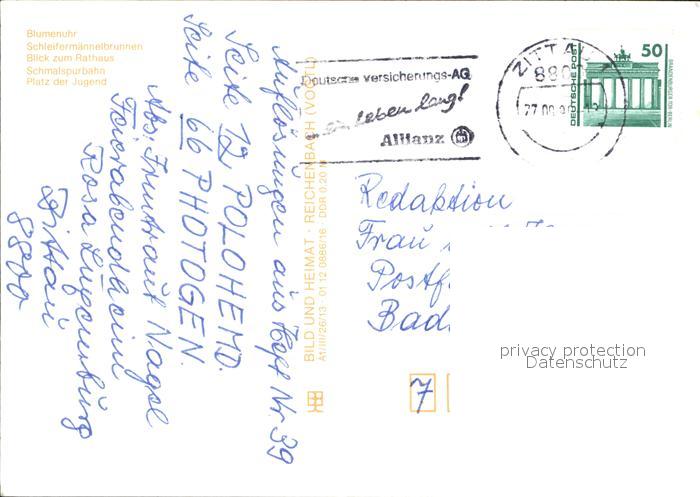 Blumenuhr
Schleifermännelbrunnen
Blick zum Rathaus
Schmalspurbahn
Platz der Jugend
Auflösungen aus Heft Nr 39
Seite 12 POLOHEMD.
Seite 66 PHOTOGEN.
Abs: Irmtraut Nagel
Feierabendheim
Rosa Luxemburg
Zittau
8800
BILD UND HEIMAT · REICHENBACH (VOGTL)
A1/III/26/13 · 01 12 0886/16 · DDR 0.20 M
Deutsche Versicherungs-AG
ein Leben lang!
Allianz
ZITTAU
880
27.09.9
50
DEUTSCHE POST
BRANDENBURGER TOR BERLIN
Redaktion
Frau
Postf.
Bad
7
privacy protection
Datenschutz